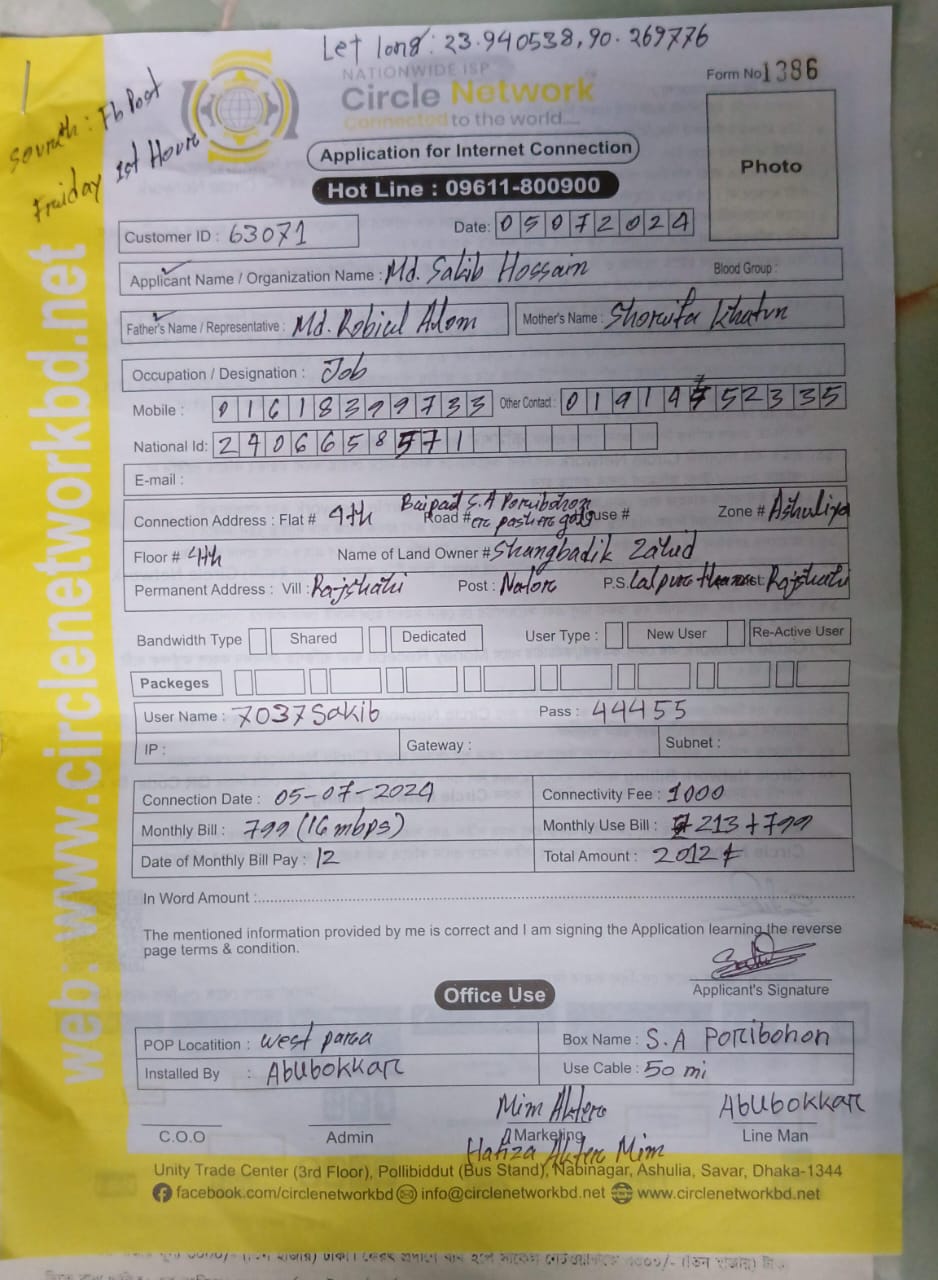 Let long: 23.940538, 90.269776
NATIONWIDE ISP
Form No 1386
Circle Network
Connected to the world....
Sourcth: Fb Post
Fruiday 1st Hour
Application for Internet Connection
Photo
Hot Line : 09611-800900
Customer ID : 63071
Date: 05072024
Applicant Name / Organization Name : Md. Sakib Hossain Blood Group :
Father's Name / Representative : Md. Robiul Alom Mother's Name : Shorufa Khatun
Occupation / Designation : Job
Mobile : 01618399733 Other Contact : 01914752335
National Id: 2406658571
E-mail :
Connection Address : Flat # 4th Baipail S.A Poribohon Road # er pasher goli House # Zone # Ashuliya
Floor # 4th Name of Land Owner # Shangbadik Zahid
Permanent Address : Vill : Rajshahi Post : Nator P.S. Lalpur Dist: Rajshahi
Bandwidth Type Shared Dedicated User Type : New User Re-Active User
Packeges
User Name : 7037Sakib Pass : 44455
IP : Gateway : Subnet :
Connection Date : 05-07-2024 Connectivity Fee : 1000
Monthly Bill : 799 (16 mbps) Monthly Use Bill : 213+799
Date of Monthly Bill Pay : 12 Total Amount : 2012
In Word Amount :
The mentioned information provided by me is correct and I am signing the Application learning the reverse
page terms & condition.
Applicant's Signature
Office Use
POP Locatition : West para Box Name : S.A Poribohon
Installed By : Abubokkar Use Cable : 50 mi
Mim Akter Abubokkar
C.O.O Admin Marketing Line Man
Hafiza Akter Mim
Unity Trade Center (3rd Floor), Pollibiddut (Bus Stand), Nabinagar, Ashulia, Savar, Dhaka-1344
facebook.com/circlenetworkbd info@circlenetworkbd.net www.circlenetworkbd.net
web: www.circlenetworkbd.net